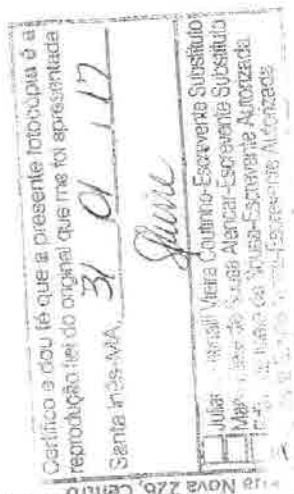 Certifico e dou fé que a presente fotocópia é a
reprodução fiel do original que me foi apresentada
Santa Inês-MA, 31 01 17
Vieira Coutinho-Escrevente Substituto
de Sousa Alencar-Escrevente Substituto
de Sousa-Escrevente Autorizada
Escrevente Autorizada
Rua Nova 226, Centro